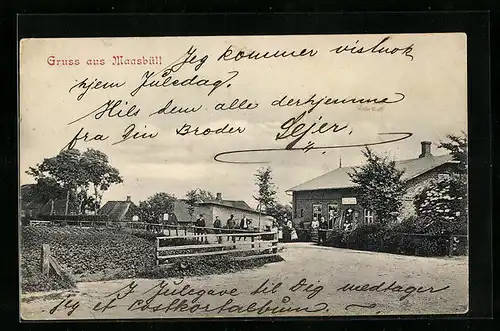 Gruss aus Maasbüll
Jeg kommer vistnok
hjem Juledag?
Hils dem alle derhjemme
fra Din Broder Lejer.
I Julegave til Dig medtager
Jeg et Postkortalbum.